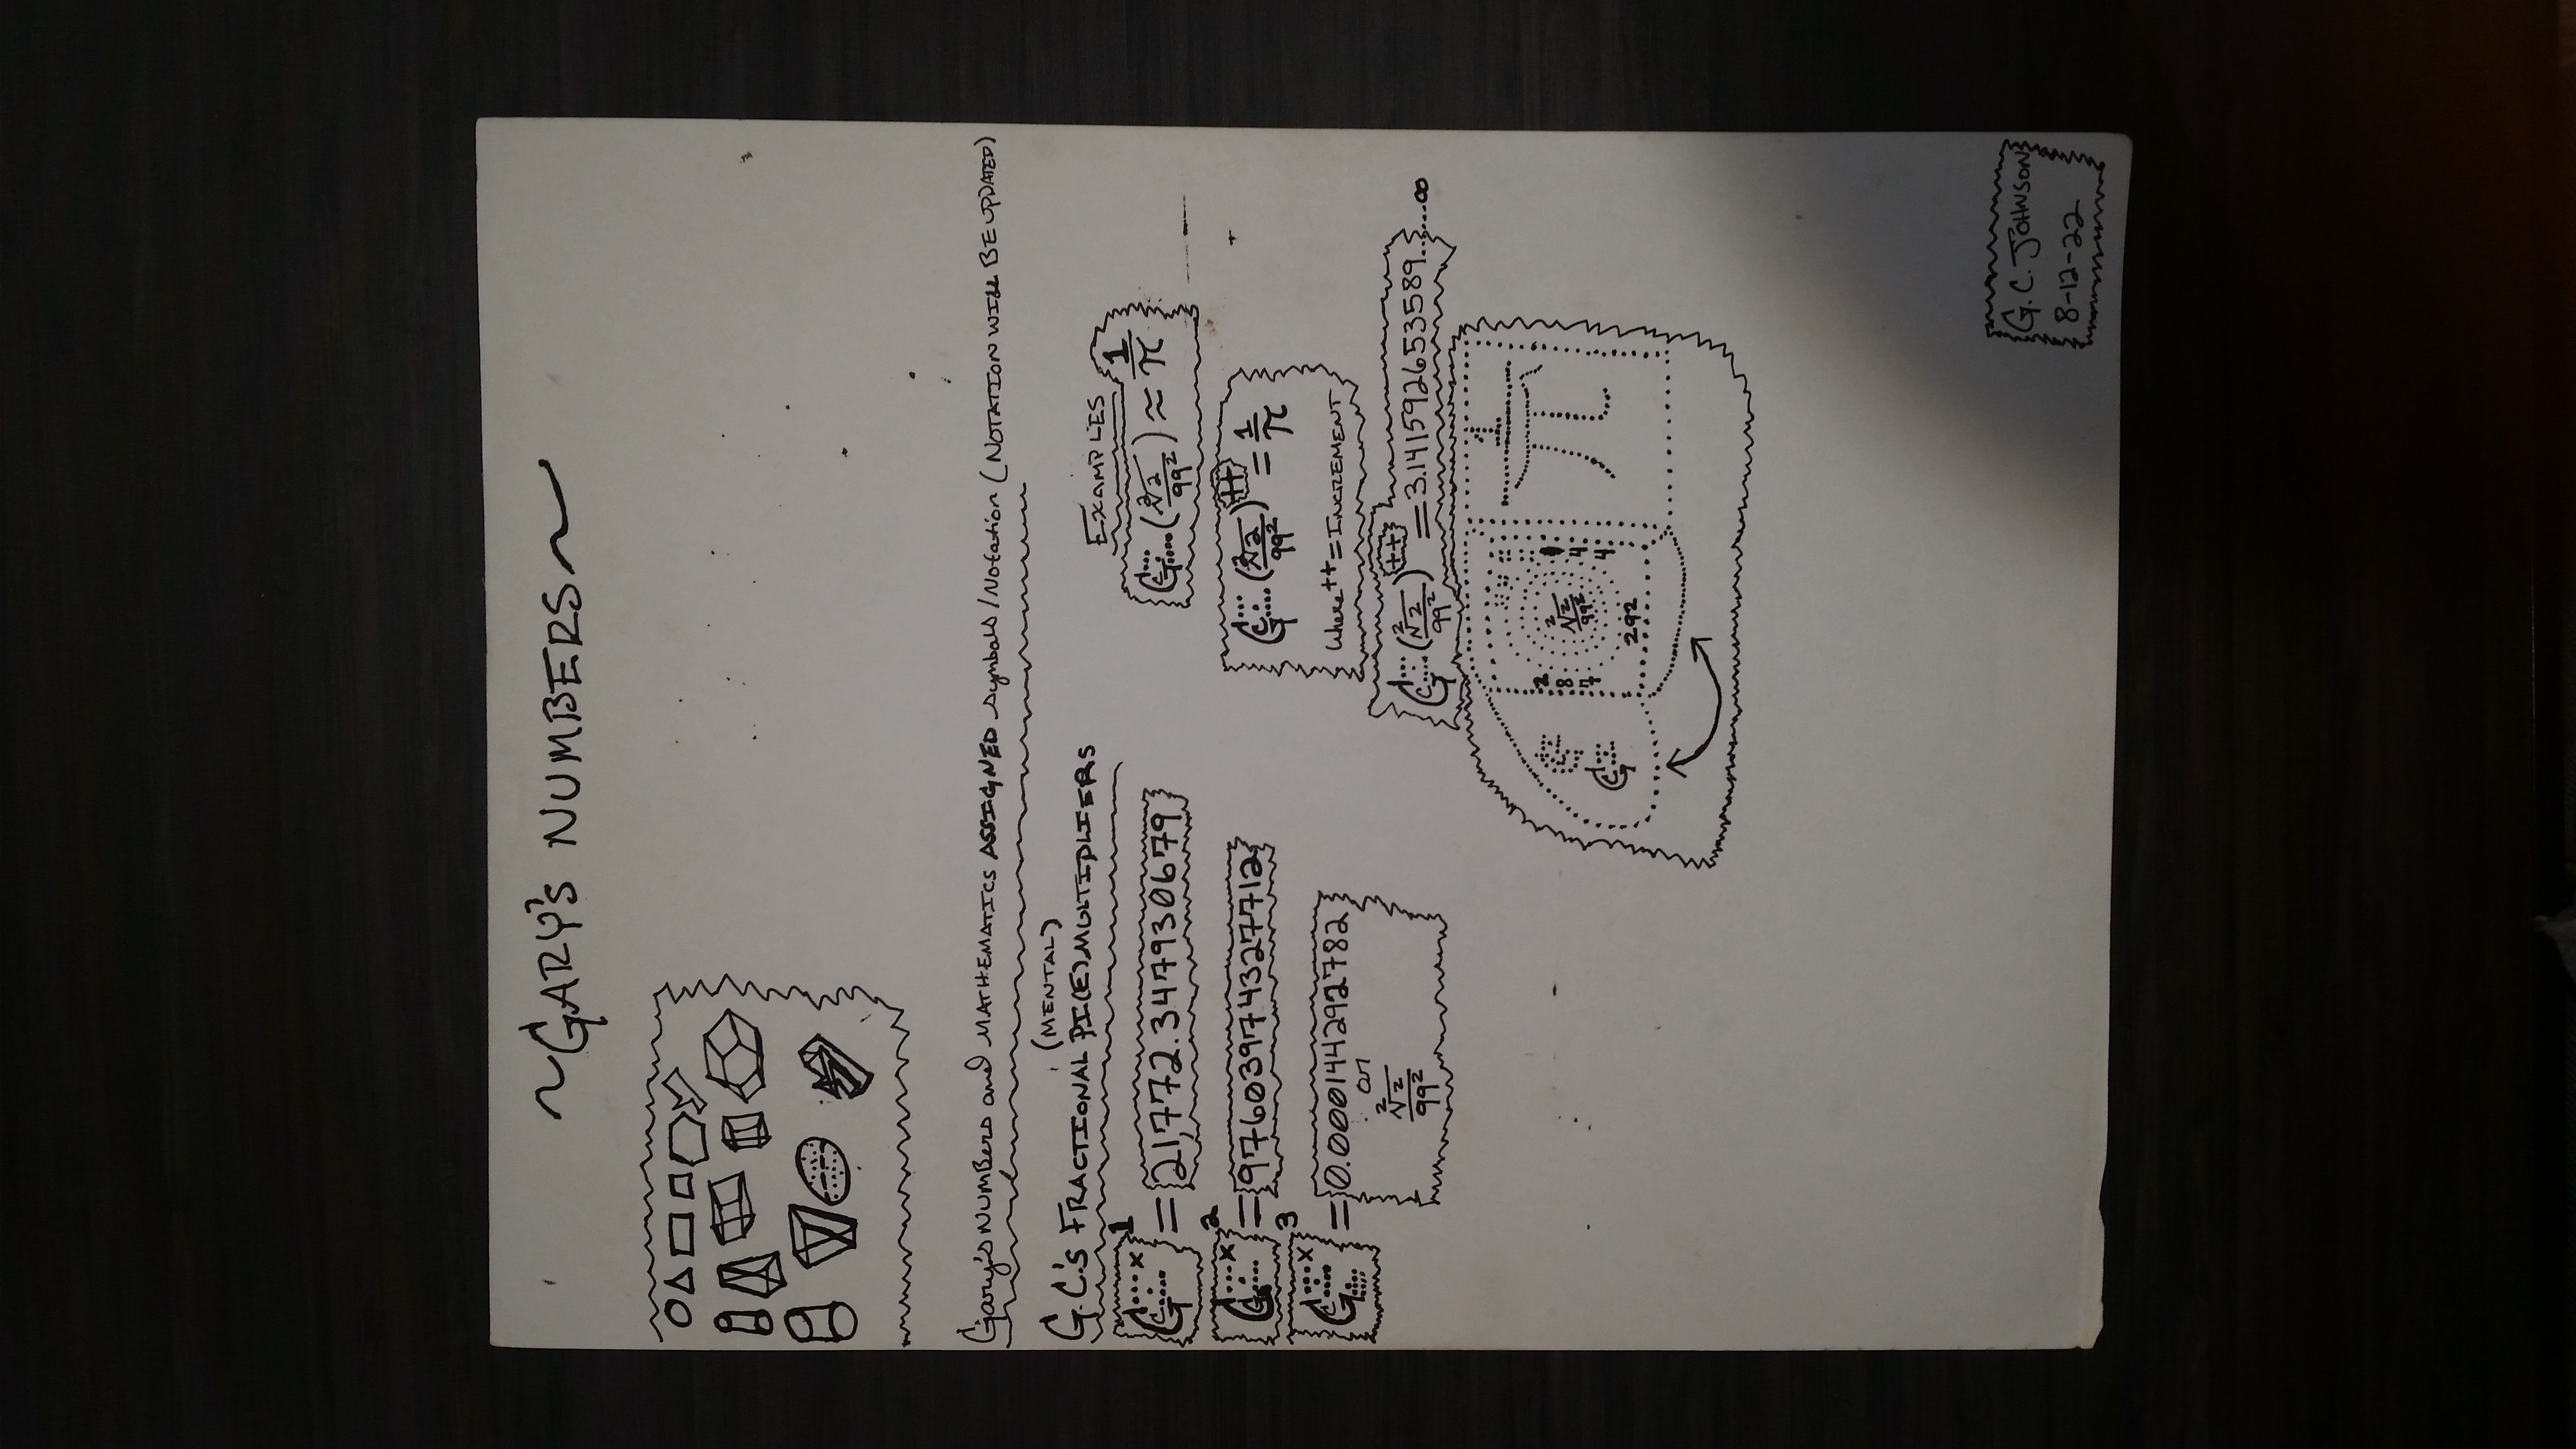 ~GARY'S NUMBERS~
Gary's NUMBERS and MATHEMATICS ASSIGNED Symbols/Notation (NOTATION WILL BE UPDATED)
(MENTAL)
G.C.'s FRACTIONAL PI(E) MULTIPLIERS
x 1
= 21,772.347930679
x 2
= 97603974327712
x 3
= 0.000144292782
or
²√2
99²
EXAMPLES
(²√2/99²) ≈ 1/π
(²√2/99²)++ = 1/π
Where ++ = INCREMENT
(²√2/99²)++ = 3.141592653589.......∞
287
²√2
99²
44
292
1
π
G.C. JOHNSON
8-12-22